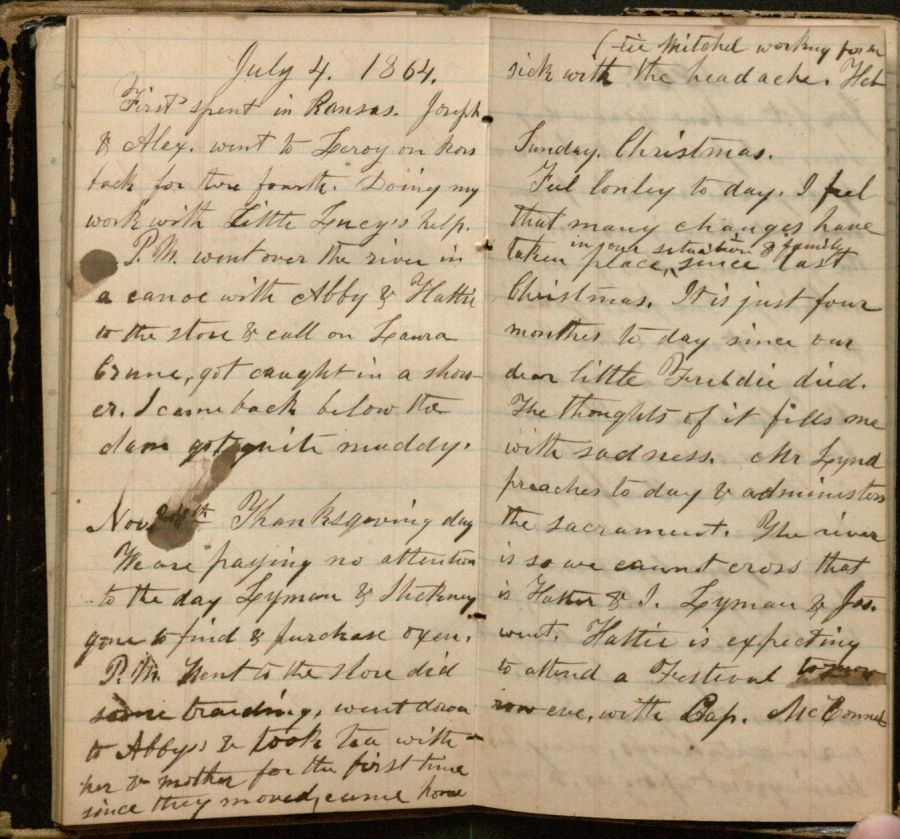 July 4. 1864.
First spent in Kansas. Joseph
& Alex. went to Leroy on hors
back for there fourth. Doing my
work with Little Lucy's help.
P.M. went over the river in
a canoe with Abby & Hattie
to the store & call on Laura
Crane, got caught in a show-
er. I came back below the
dam got quite muddy.
Nov 24th Thanksgiving day
We are paying no attention
to the day Lyman & Stickney
gone to find & purchase oxen.
P.M. Went to the store did
some traiding, went down
to Abbys & took tea with
her & mother for the first time
since they moved, came home
sick with the headache. Het-
(tie Mitchel working for m
Sunday. Christmas.
Feel lonley to day. I feel
that many changes have
taken place, in our situation & family since last
Christmas. It is just four
months to day since our
dear little Freddie died.
The thoughts of it fills me
with sadness. Mr Lynd
preaches to day & administers
the sacrament. The river
is so we cannot cross that
is Hattie & I. Lyman & Jos.
went. Hattie is expecting
to attend a Festival to mor
row eve, with Cap. McConnel